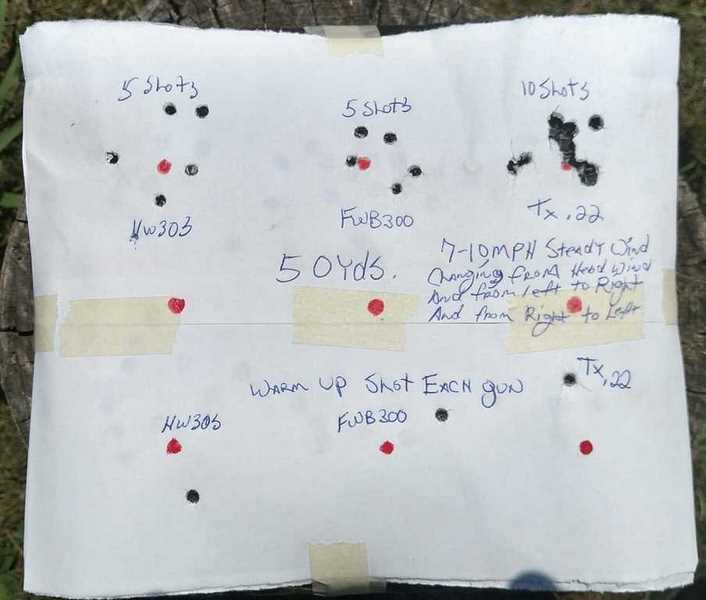 5 Shots
5 Shots
10 Shots
HW30S
FWB300
Tx .22
50Yds.
7-10MPH Steady Wind
Changing from Head Wind
And from left to Right
And from Right to Left
Warm up Shot Each gun
Tx .22
HW30S
FWB300